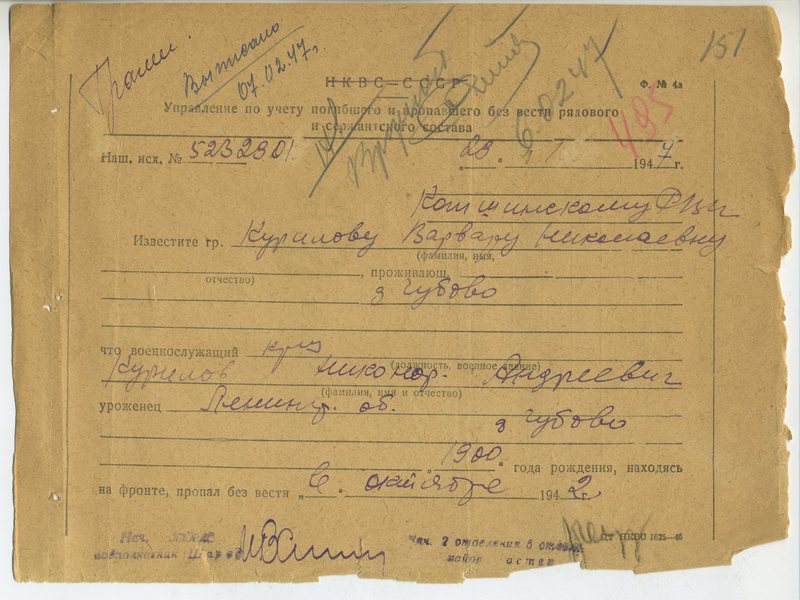 Выписано
07.02.47г.
151
НКВС–СССР
Ф. № 4а
6.02.47
495
Управление по учету погибшего и пропавшего без вести рядового
и сержантского состава
Наш. исх. № 5232901
„29 „ 1 1947 г.
РВК
Известите гр. Курилову Варвару Николаевну
(фамилия, имя,
отчество) , проживающ.
д Чубово
что военнослужащий кр-ц
(должность, военное звание)
Курилов Никонор. Андреевич
(фамилия, имя и отчество)
уроженец Ленингр. об.
д Чубово
1900 года рождения, находясь
на фронте, пропал без вести „в „ октябре 1942 г.
Нач.
подполковник
Нач. 2 отделения 6 отдела
майор